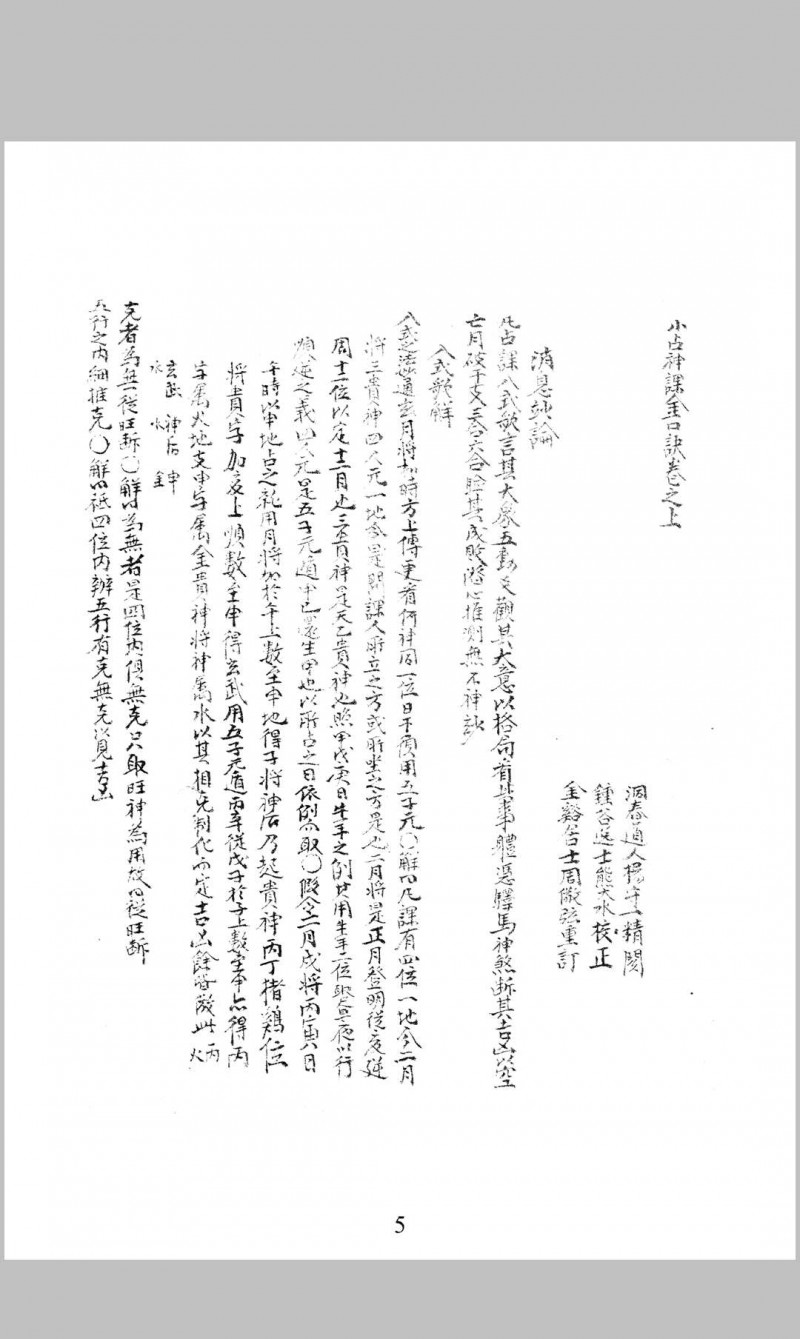 小占神課金口訣卷之上
洞春道人楊守一精閱
鍾谷逸士熊大水校正
金谿居士周儆弦重訂
消息妙論
凡占課入式歌言其大綱五動爻觀其大意以格局看其事體憑驛馬神煞斷其吉凶以空
亡月破干支三合六合驗其成敗潛心推測無不神訣
入式歌解
入式法通玄月將加時方上傳更看何神同一位日干須用五子元〇解曰凡課有四位一地分二月
將三貴神四人元一地分是問課人所立之方或所坐之方是也二月將是正月登明從亥逆
周十二位以定十二月也三貴神是天乙貴神也照甲戊庚日牛羊之例其用牛羊二位取旦夜以行
順逆之義四人元是五子元遁甲己還生甲也以所占之日依例而取〇假令二月戌將丙寅日
午時以申地占之就用月將加於午上數至申地得子將神后乃起貴神丙丁猪鷄位
將貴字加亥上順數至申得玄武用五子元遁丙辛從戊子於子上數至申亦得丙
字屬火地支申字屬金貴神將神屬水以其相克制化而定吉凶餘皆倣此 丙火
玄武水 神后水 申金
克者為無從旺斷〇解曰為無者是四位內俱無克只取旺神為用故曰從旺斷
五行之內細推克〇解曰祇四位內辨五行有克無克以見吉凶
5